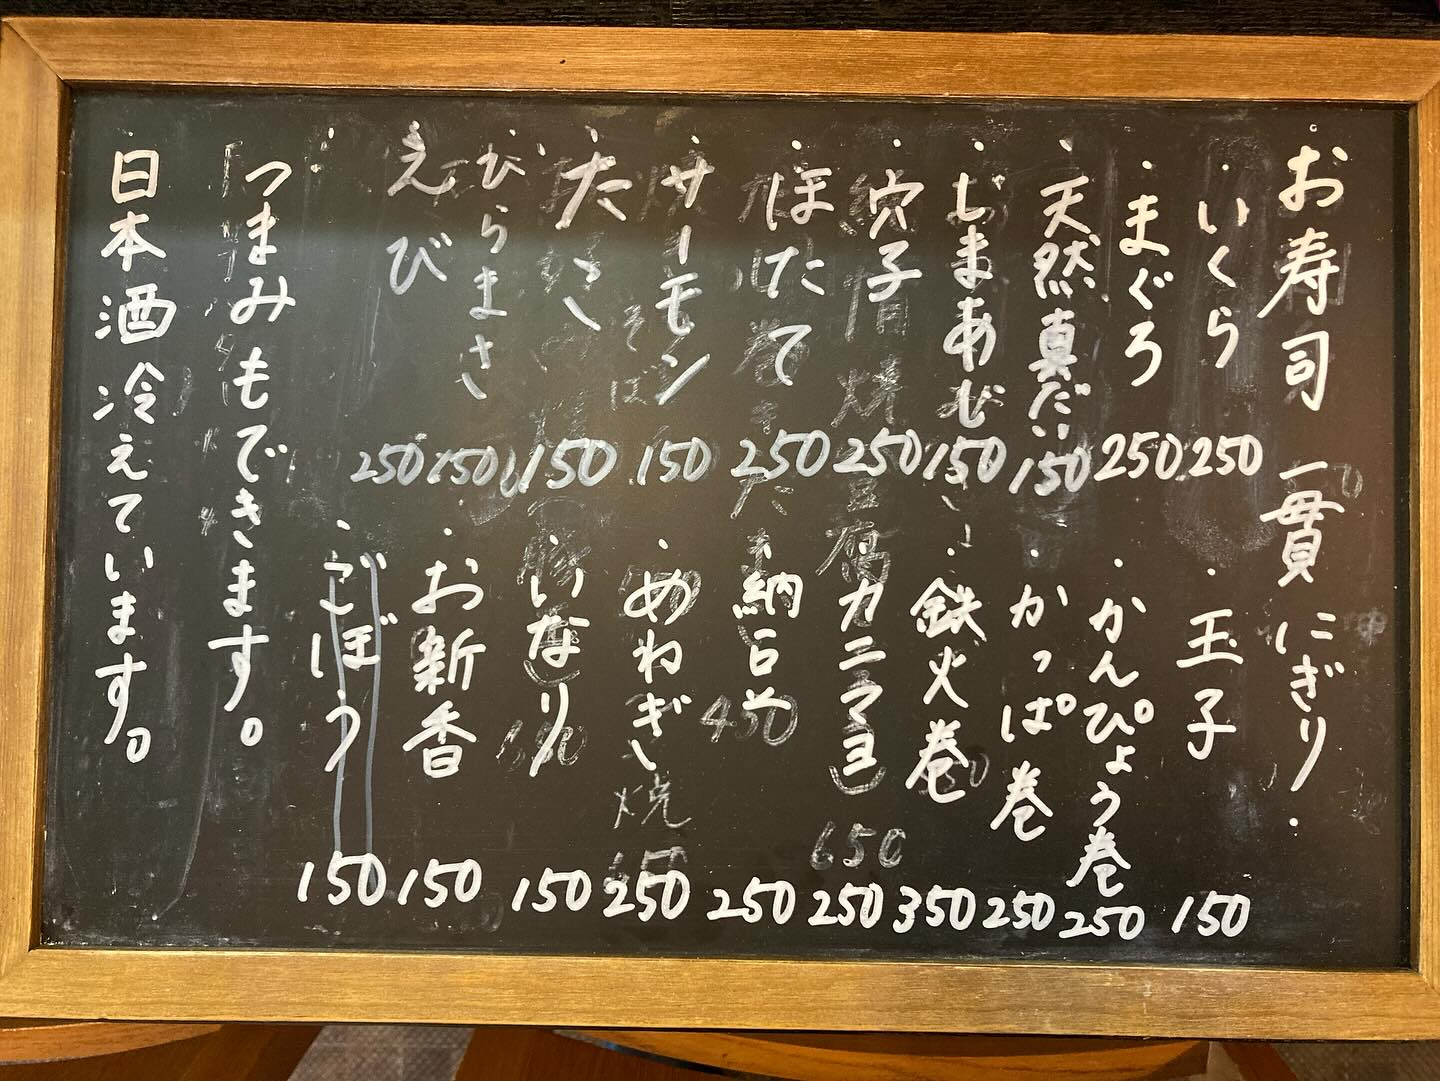 お寿司 一貫 にぎり.
・いくら 250
・まぐろ 250
・天然真だい 150
・しまあじ 150
・穴子 250
・ほたて 250
・サーモン 150
・たこ 150
・ひらまさ 150
・えび 250
・玉子 150
・かんぴょう巻 250
・かっぱ巻 250
・鉄火巻 350
・カニマヨ 250
・納豆 250
・めねぎ 250
・いなり 150
・お新香 150
・ごぼう 150
つまみもできます。
日本酒 冷えています。